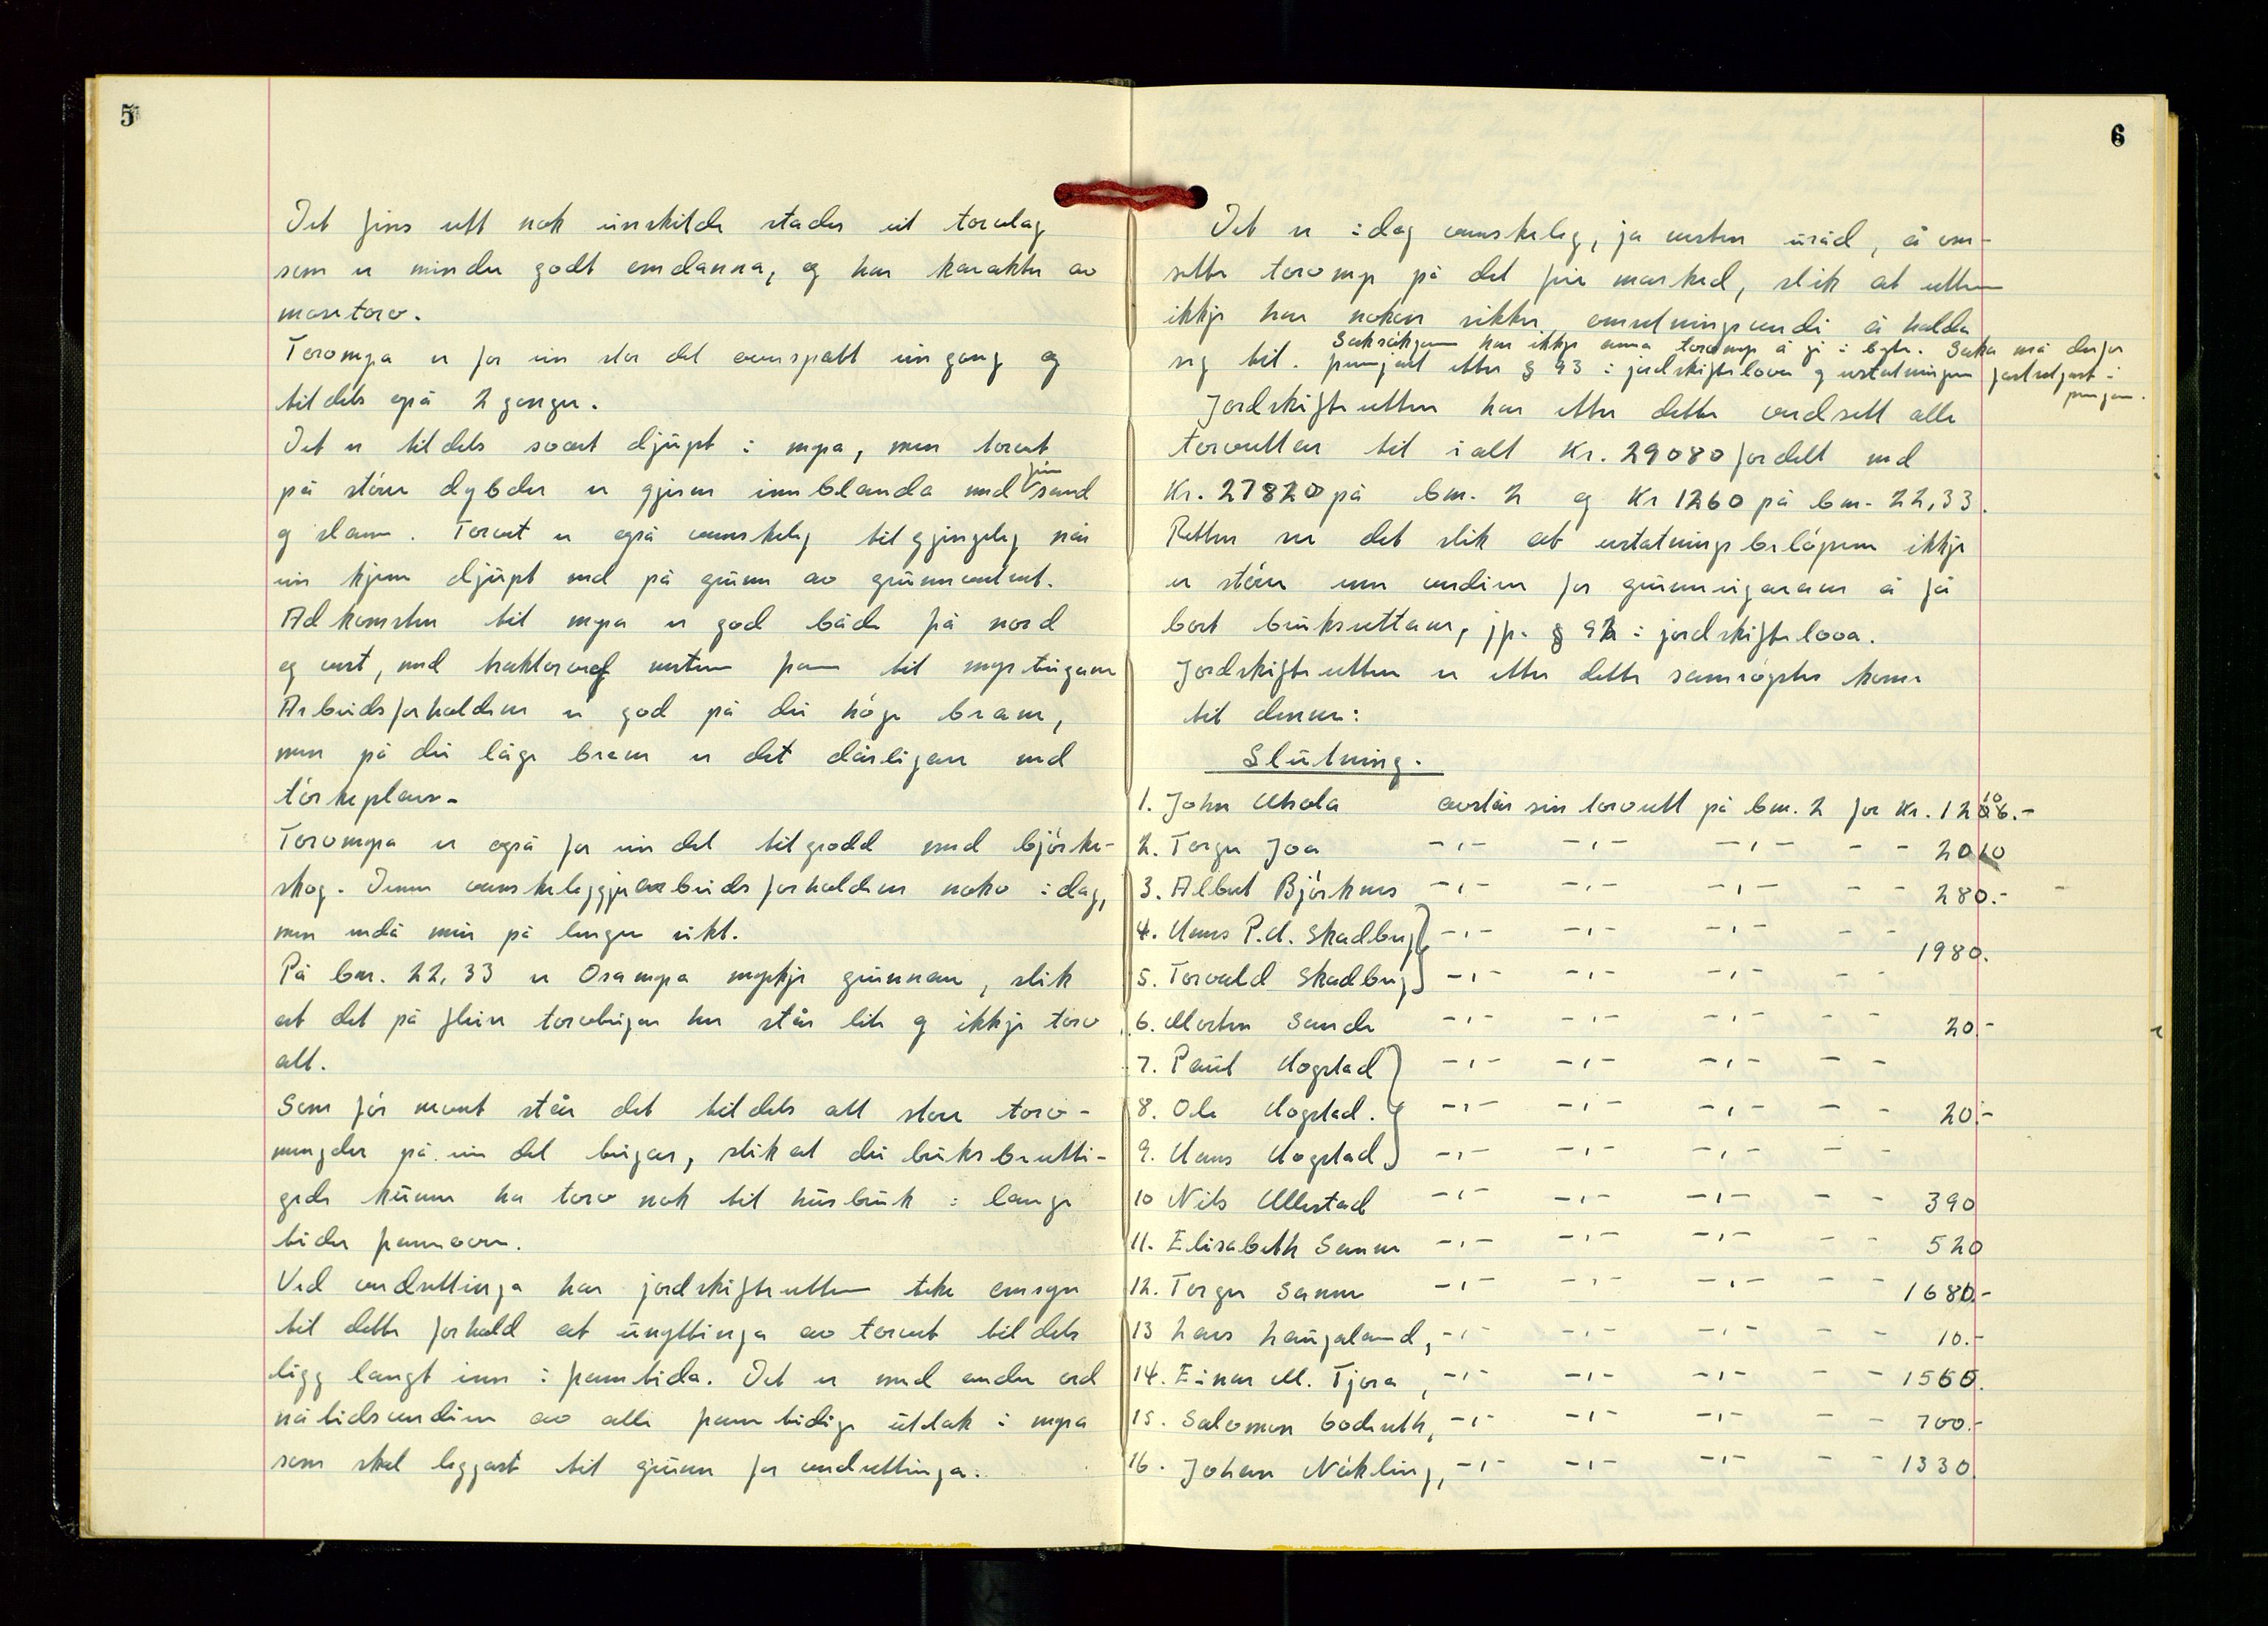 5
Det fins rett nok einskilde stader eit torvlag
som er mindre godt omdanna, og har karakter av
mosetorv.
Torvmyra er for ein stor del avspatt ein gong og
tildels opå 2 gonger.
Det er tildels svært djupt i myra, men torvet
på større dybder er gjerne innblanda med fin sand
og slam. Torvet er også vanskeleg tilgjengeleg når
ein kjem djupt ned på grunn av grunnvatnet.
Adkomsten til myra er god både frå nord
og vest, med traktorveg nesten fram til myrteigane
Arbeidsforholdene er god på dei høge brane,
men på dei låge brane er det dårligare med
tørkeplass.
Torvmyra er også for ein del tilgrodd med bjørke-
skog. Denne vanskeleggjer arbeidsforholdene noko i dag,
men endå meir på lenger sikt.
På bnr. 22,33 er Osamyra mykje grunnare, slik
at det på fleire torvteigar her står lite og ikkje torv
att.
Som før nemnt står det tildels att store torv-
mengder på ein del teigar, slik at dei bruksberetti-
gede kunne ha torv nok til husbruk i lange
tider framover.
Ved verdsettinga har jordskifteretten teke omsyn
til dette forhold at utnyttinga av torvet tildels
ligg langt inn i framtida. Det er med andre ord
nåtidsverdien av alle framtidige uttak i myra
som skal leggjast til grunn for verdsettinga.
6
Det er i dag vanskeleg, ja nesten uråd, å om-
sette torvmyr på det frie marked, slik at retten
ikkje har nokon sikker omsetningsverdi å halda
Saksøkjaren har ikkje anna torvmyr å gi i byte. Saka må derfor
seg til. fremjast etter § 93 i jordskiftelova og erstatningen fastsetjast i
pengar.
Jordskifteretten har etter dette verdsett alle
torvrettar til ialt kr. 29080 fordelt med
kr. 27820 på bnr. 2 og kr 1260 på bnr. 22,33.
Retten ser det slik at erstatningsbeløpene ikkje
er større enn verdien for grunneigarane å få
bort bruksrettane, jfr. § 92 i jordskiftelova.
Jordskifteretten er etter dette samrøystes kome
til denne:
Slutning.
1. John Uhala avstår sin torvrett på bnr. 2 for kr. 1210.-
2. Torger Joa -,- -,- -,- - - 2010
3. Albert Bjørknes -,- -,- -,- - - 280.-
4. Hans P.H. Skadberg -,- -,- -,- - -
1980.
5. Torvald Skadberg -,- -,- -,- - -
6. Morten Sande -,- -,- -,- - - 20.-
7. Paul Hogstad -,- -,- -,- - -
8. Ole Hogstad. -,- -,- -,- - - 20.-
9. Hans Hogstad -,- -,- -,- - -
10 Nils Ullestad -,- -,- -,- - - 390
11. Elisabeth Sømme -,- -,- -,- - - 520
12. Torger Sømme -,- -,- -,- - - 1680.-
13 Lars Haugaland, -,- -,- -,- - - 10.-
14. Einar M. Tjora, -,- -,- -,- - - 1560.
15. Salomon Goderth, -,- -,- -,- - - 700.-
16. Johan Nækling, -,- -,- -,- - - 1330